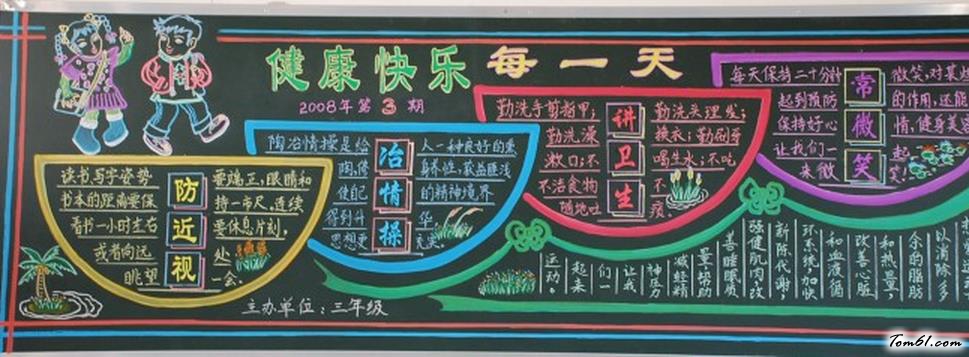 健康快乐每一天
2008年第3期
防近视
读书写字姿势要端正,眼睛和
书本的距离要保持一市尺,连续
看书一小时左右要休息片刻,
或者向远处
眺望一会.
冶情操
陶冶情操是给人一种良好的熏
陶,修身养性,
使自己的精神境界
得到升华,
思想更充实.
讲卫生
勤洗手剪指甲;勤洗头理发;
勤洗澡换衣;勤刷牙
漱口;不喝生水;不吃
不洁食物不
随地吐痰
常微笑
每天保持二十分钟微笑,对某些
起到预防的作用,还能
保持好心情,健身美容
让我们一起
来微笑!
以消除多
余的脂肪
和热量,
改善心脏
和血液循
环系统,加快
新陈代谢,
强健肌肉,改
善睡眠质
量,帮助
减轻精
神压力
让我
们一
起来
运动。
主办单位:三年级
Tom61.com